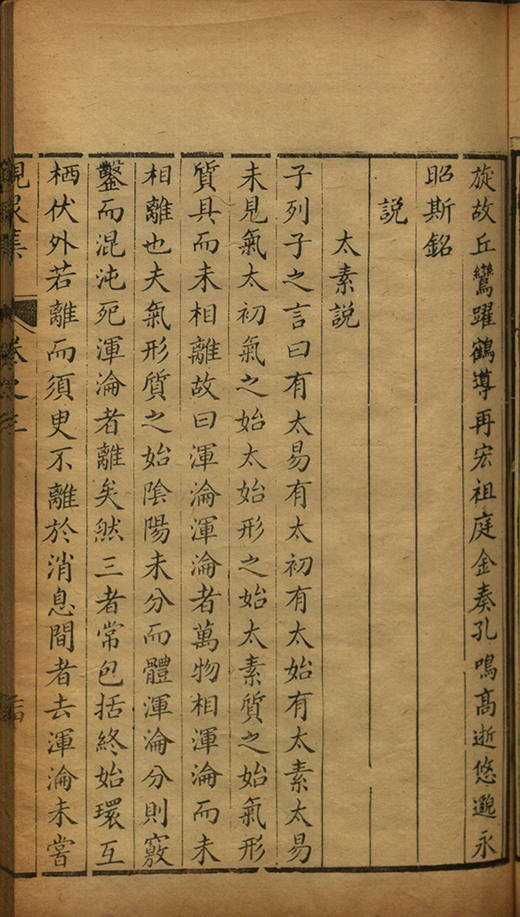 旋故丘鸞躍鶴導再宏祖庭金奏孔鳴高逝悠邈永
昭斯銘
說
太素說
子列子之言曰有太易有太初有太始有太素太易
未見氣太初氣之始太始形之始太素質之始氣形
質具而未相離故曰渾淪渾淪者萬物相渾淪而未
相離也夫氣形質之始陰陽未分而體渾淪分則竅
鑿而混沌死渾淪者離矣然三者常包括終始環互
栖伏外若離而須臾不離於消息間者去渾淪未嘗